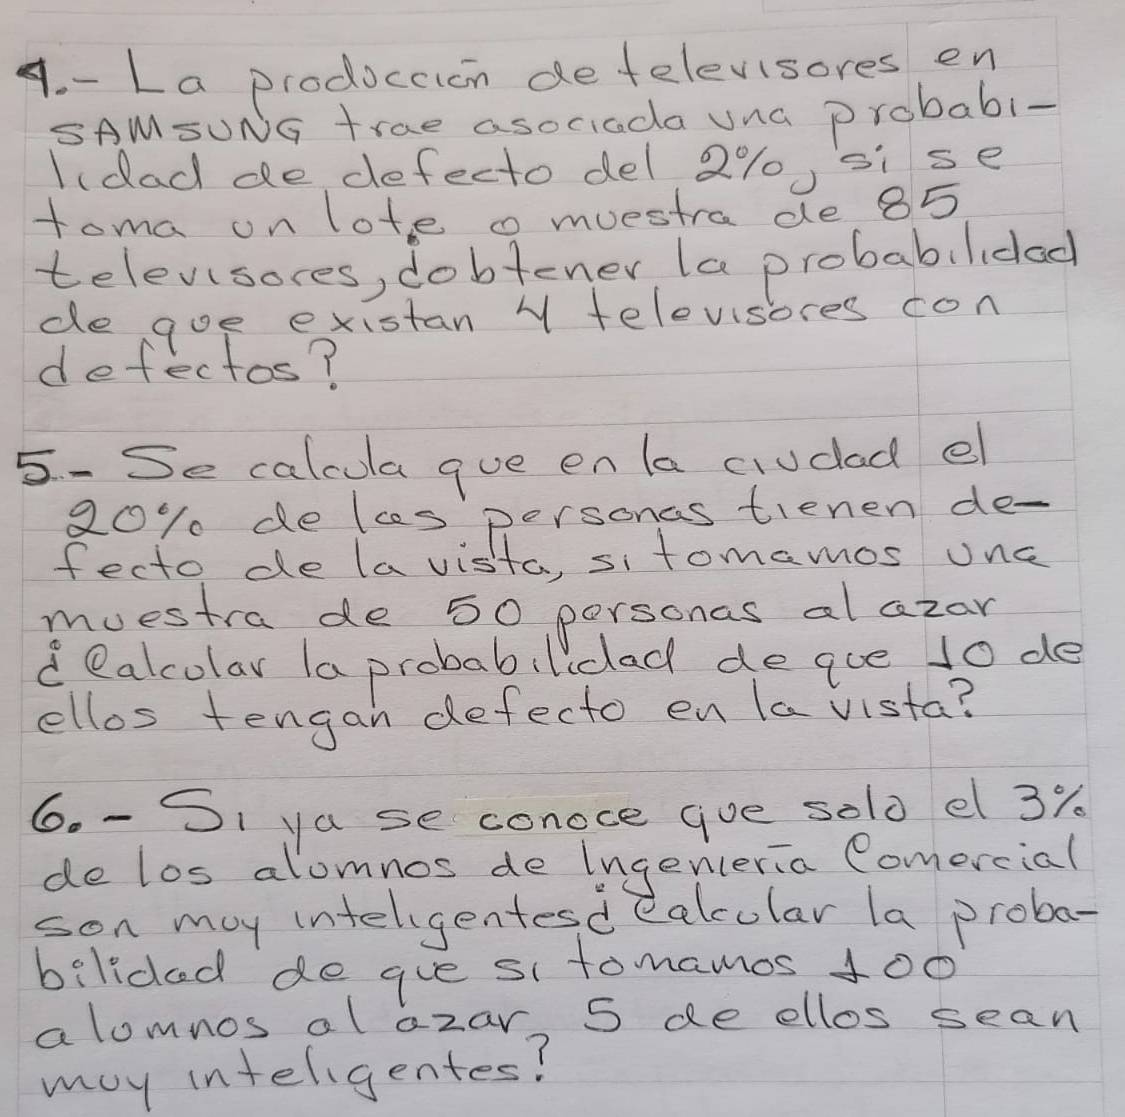 4.- La producción de televisores en
SAMSUNG trae asociada una probabi-
lidad de defecto del 2%, si se
toma un lote o muestra de 85
televisores, ¿obtener la probabilidad
de que existan 4 televisores con
defectos?
5.- Se calcula que en la ciudad el
20% de las personas tienen de-
fecto de la vista, si tomamos una
muestra de 50 personas al azar
¿Calcular la probabilidad de que 10 de
ellos tengan defecto en la vista?
6.- Si ya se conoce que solo el 3%
de los alumnos de Ingeniería Comercial
son muy inteligentes¿Calcular la proba-
bilidad de que si tomamos 100
alumnos al azar, 5 de ellos sean
muy inteligentes?